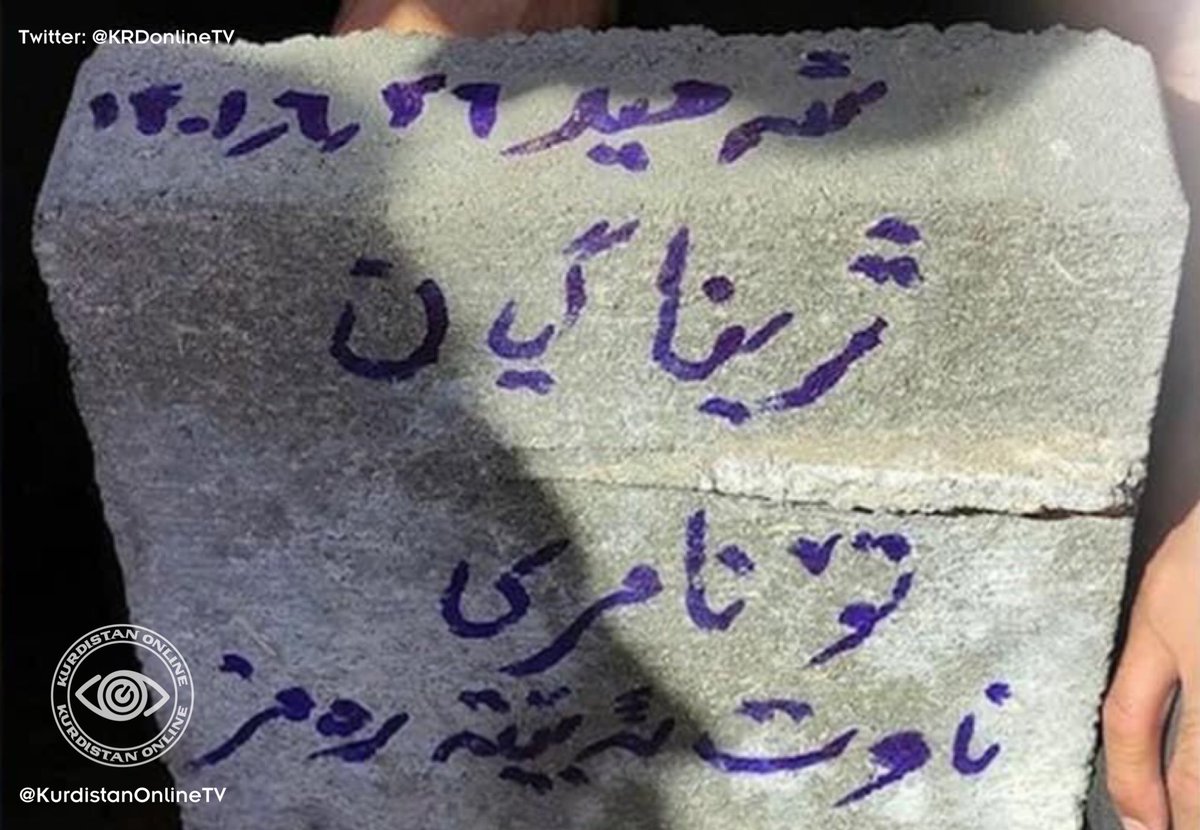 Twitter: @KRDonlineTV
شەهید ۱۴۰۱/۶/۲۶
ژینا گیان
تۆ نامری
ناوت ئەبێتە ڕەمز
KURDISTAN ONLINE
KURDISTAN ONLINE
@KurdistanOnlineTV